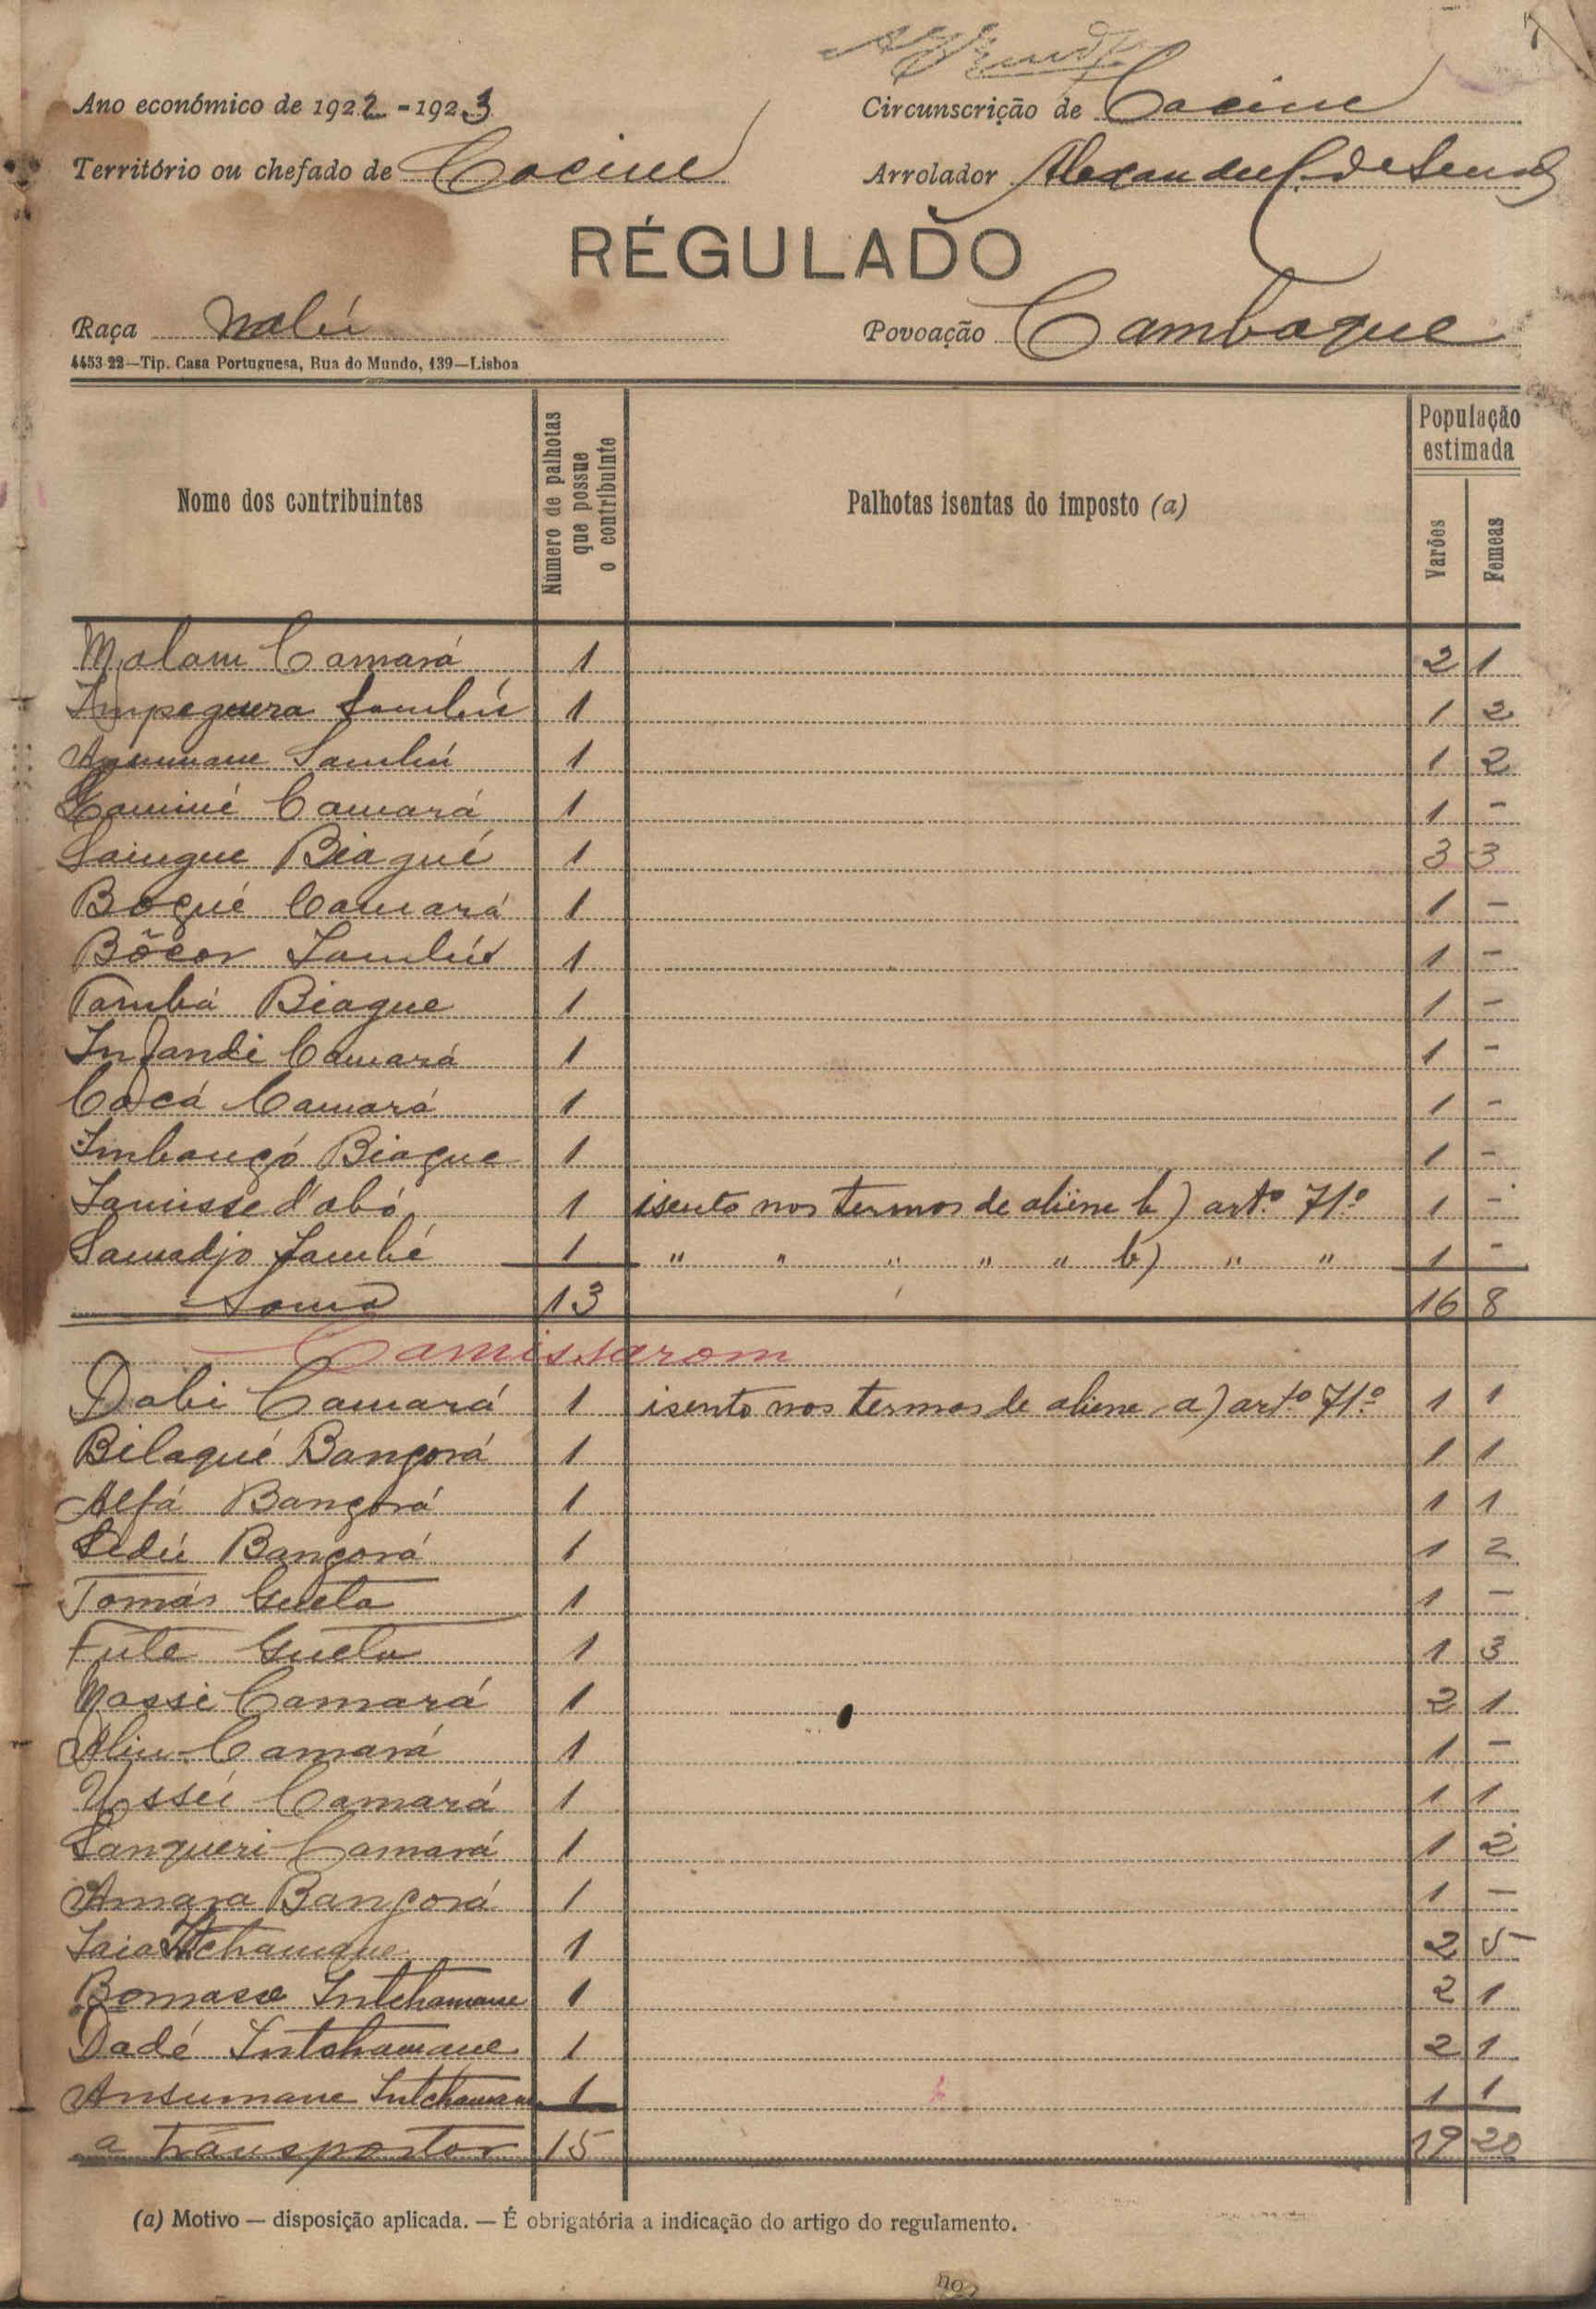 Ano económico de 1922-1923
Circunscrição de Cacine
Território ou chefado de Cacine
Arrolador Alexandre C. de Sena
RÉGULADO
Raça Nalú
Povoação Cambaque
4453-22—Tip. Casa Portuguesa, Rua do Mundo, 139—Lisboa
Nome dos contribuintes
Número de palhotas que possue o contribuinte
Palhotas isentas do imposto (a)
População estimada
Varões
Femeas
Malam Camará 1 2 1
1 1 2
Ansumane 1 1 2
Camará 1 1 -
Biagué 1 3 3
Boqué Camará 1 1 -
Bôcar 1 1 -
Tambá Biague 1 1 -
Infandi Camará 1 1 -
Cacá Camará 1 1 -
Biague 1 1 -
1 isento nos termos de aliene b) artº 71º 1 -
1 " " " " " b) " " 1 -
Soma 13 16 8
Camissarom
Dabi Camará 1 isento nos termos de aliene a) artº 71º 1 1
Bilaqué Bangorá 1 1 1
Alfá Bangorá 1 1 1
Sedú Bangorá 1 1 2
Tomás Gueta 1 1 -
Fute Gueta 1 1 3
Massi Camará 1 2 1
Aliu Camará 1 1 -
Ussú Camará 1 1 1
Sanqueri Camará 1 1 2
Amara Bangorá 1 1 -
1 2 5
Bomasse Intchamane 1 2 1
Dadé Intchamane 1 2 1
Ansumane Intchamane 1 1 1
a transportar 15 19 20
(a) Motivo — disposição aplicada. — É obrigatória a indicação do artigo do regulamento.